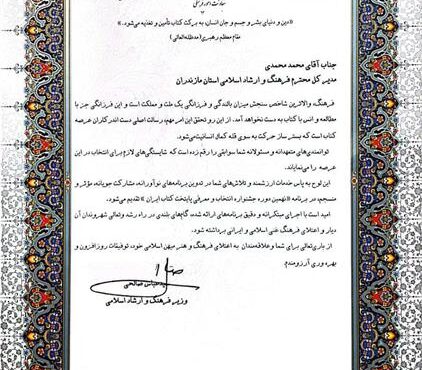 معاونت امور فرهنگی
«دین و دنیای بشر و جسم و جان انسان، به برکت کتاب تأمین و تغذیه می‌شود.»
مقام معظم رهبری (مدظله‌العالی)
جناب آقای محمد محمدی
مدیر کل محترم فرهنگ و ارشاد اسلامی استان مازندران
فرهنگ، والاترین شاخص سنجش میزان بالندگی و فرزانگی یک ملت و مملکت است و این فرزانگی جز با
مطالعه و انس با کتاب به دست نخواهد آمد. از این رو تحقق این امر مهم، رسالت اصلی دست اندرکاران عرصه
کتاب است که بستر ساز حرکت به سوی قله کمال انسانیت می‌شود.
توانمندی‌های متعهدانه و مسئولانه شما سوابقی را رقم زده است که شایستگی‌های لازم برای انتخاب در این
عرصه را می‌نمایاند.
این لوح به پاس خدمات ارزشمند و تلاش‌های شما در تدوین برنامه‌های نوآورانه، مشارکت جویانه، مؤثر و
منسجم، در برنامه «نهمین دوره جشنواره انتخاب و معرفی پایتخت کتاب ایران » تقدیم می‌شود.
امید است با اجرای مبتکرانه و دقیق برنامه‌های ارائه شده، گام‌های بلندی در راه رشد وتعالی شهروندان آن
دیار و اعتلای فرهنگ غنی اسلامی و ایرانی برداشته شود.
از باری‌تعالی برای شما وعلاقه‌مندان به اعتلای فرهنگ و هنر میهن اسلامی خود، توفیقات روزافزون و
بهره وری آرزومندم.
سیدعباس صالحی
وزیر فرهنگ و ارشاد اسلامی